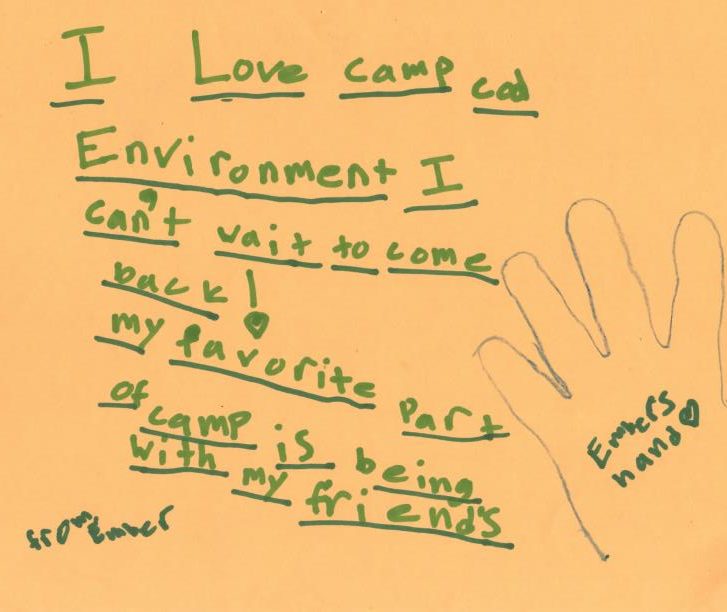 I Love camp cod
Environment I
can't wait to come
back!
my favorite part
of camp is being
with my friend's
from Ember
Embers
hand